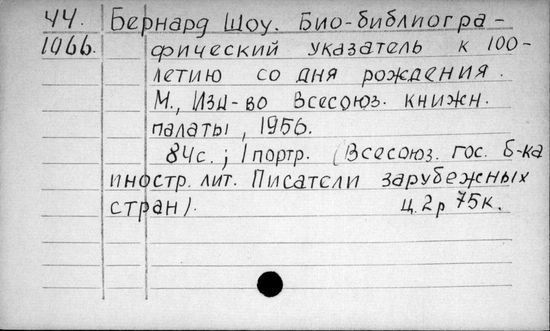 44. Бернард Шоу. Био-библиогра-
1066. фический указатель к 100-
летию со дня рождения.
М., Изд-во Всесоюз. книжн.
палаты, 1956.
84с.; 1 портр. (Всесоюз. гос. б-ка
иностр. лит. Писатели зарубежных
стран).
ц. 2р 75к.